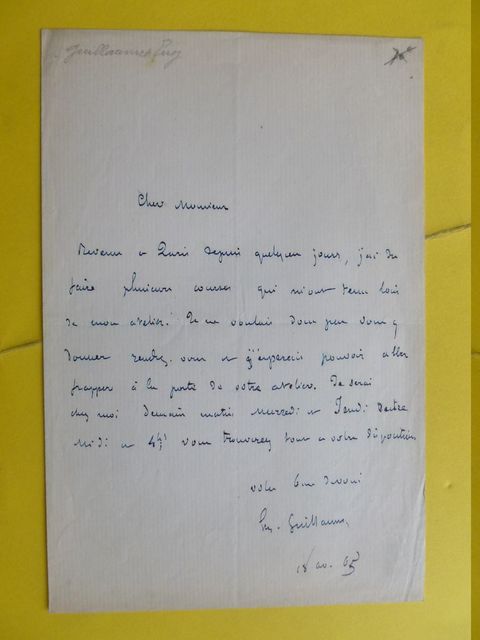 Guillaumet
Cher Monsieur
Revenu à Paris depuis quelques jours, j'ai du
faire plusieurs courses qui m'ont tenu loin
de mon atelier. Je ne voulais donc pas vous y
donner rendez-vous et j'espérais pouvoir aller
frapper à la porte de votre atelier. Je serai
chez moi demain matin Mercredi et Jeudi
midi à 4h vous trouverez tout à votre disposition
votre bien dévoué
Guillaumet
18 av. 65